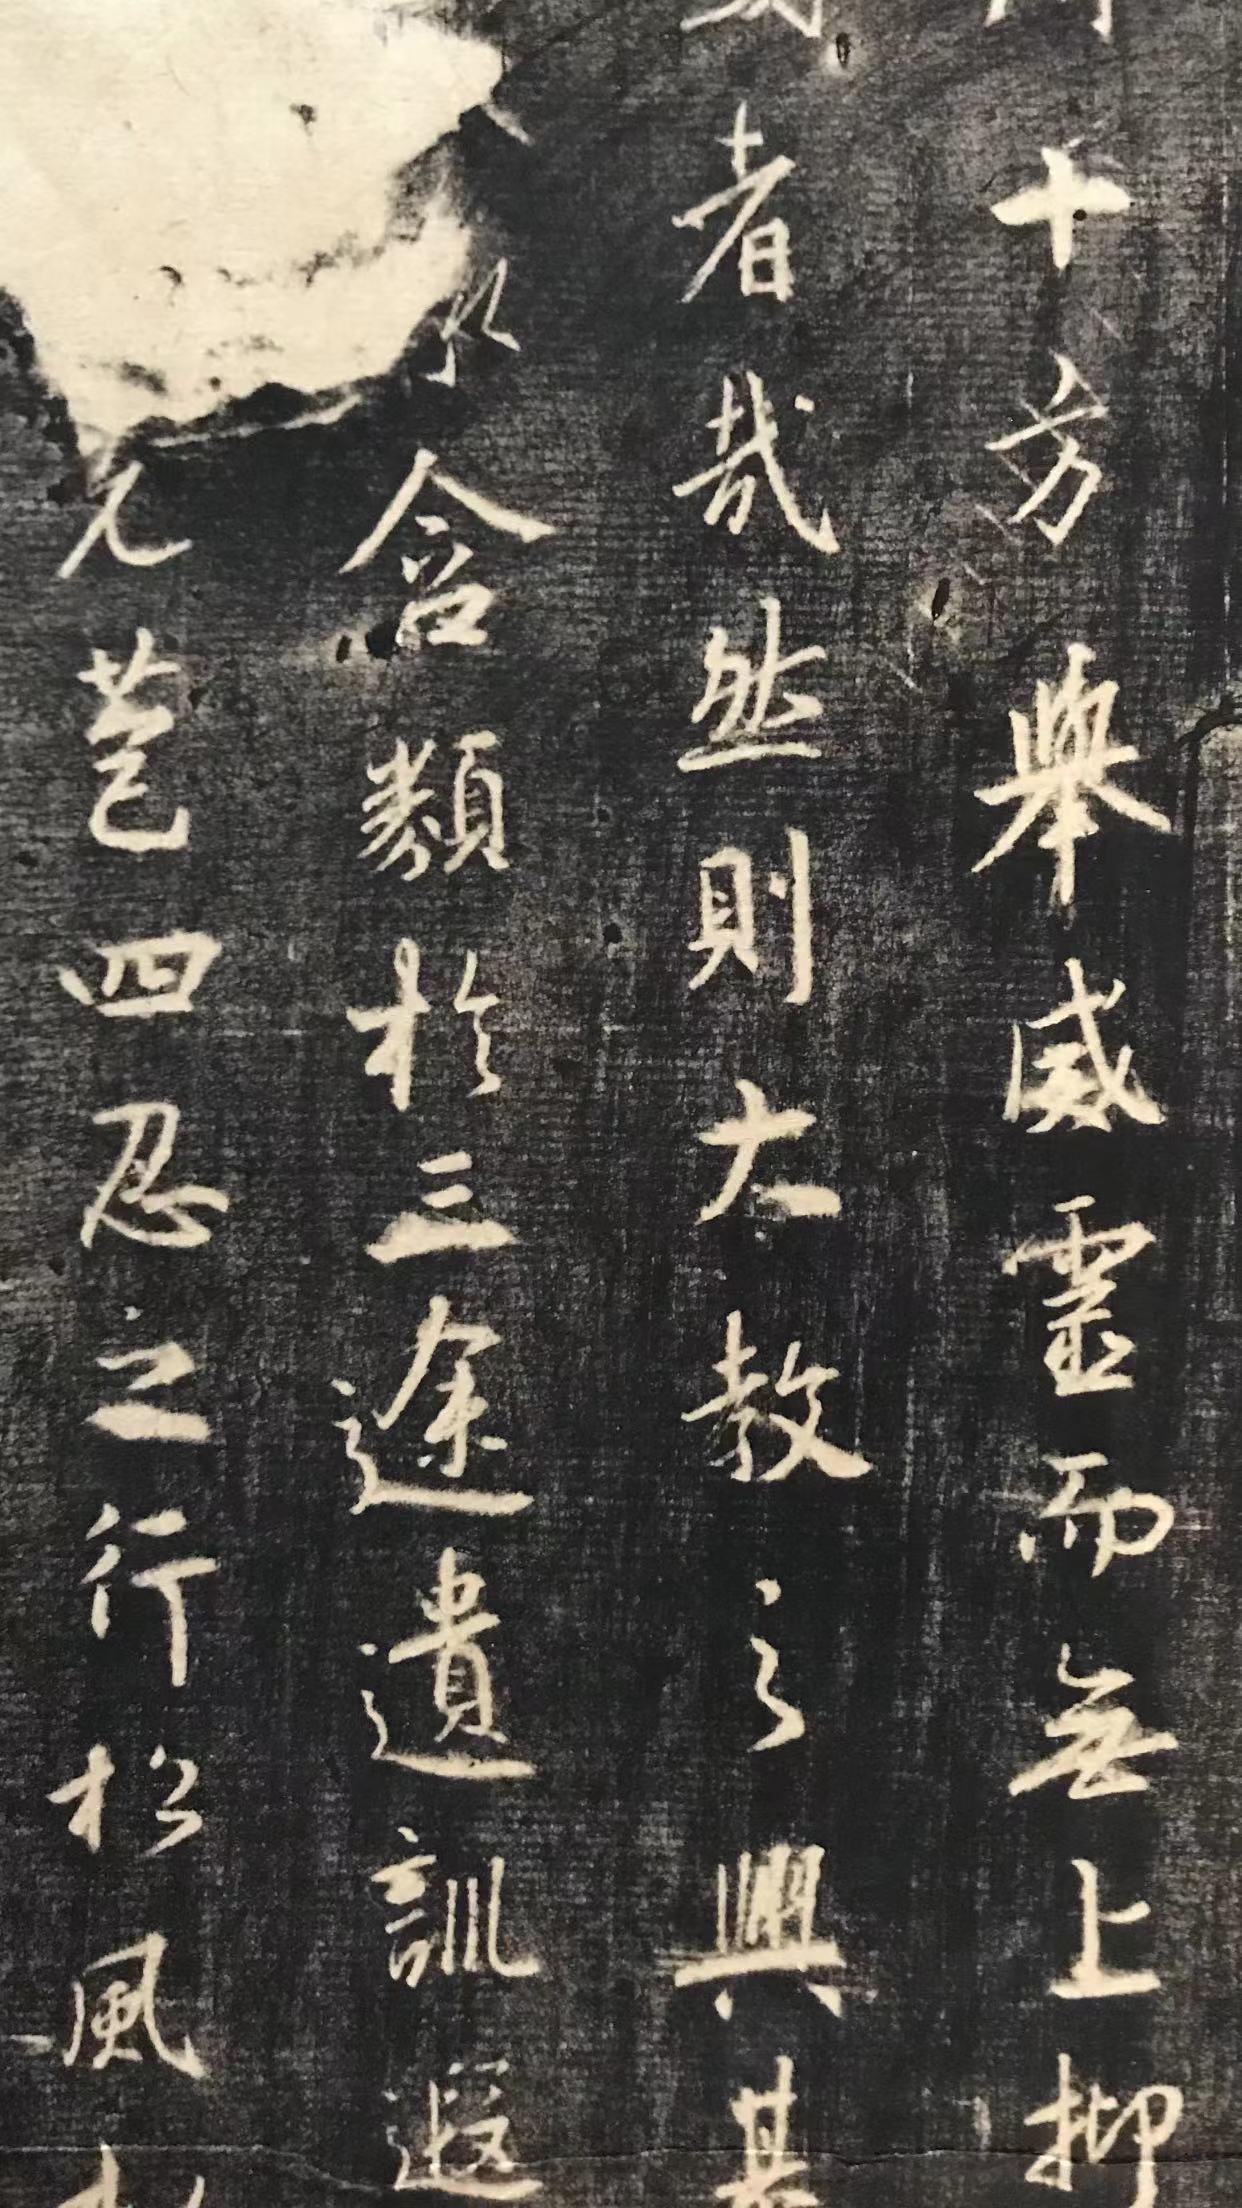 十方舉威靈而無上抑
者哉然則大教之興基
含類於三途遺訓遐
凡芑四忍之行松風